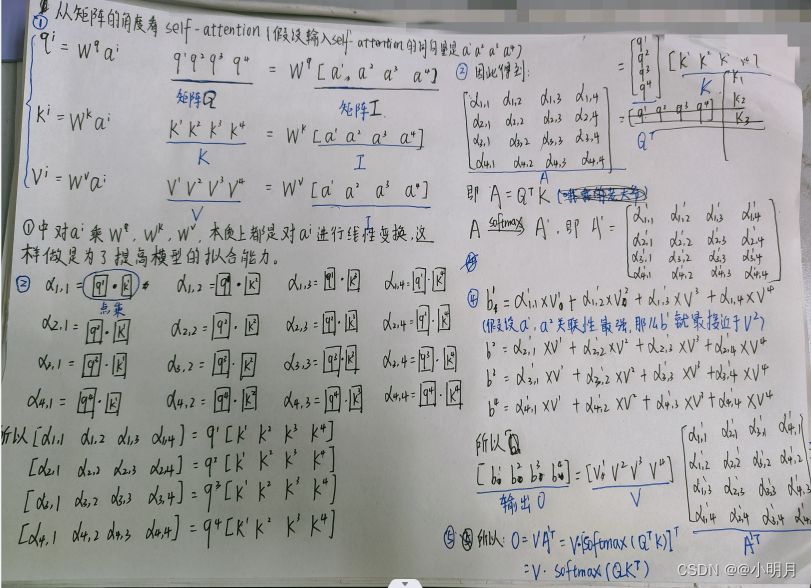 从矩阵的角度看 self-attention (假设输入self-attention的向量是a¹ a² a³ a⁴)
①
qⁱ = W^q aⁱ
q¹ q² q³ q⁴ = W^q [a¹, a² a³ a⁴]
矩阵Q 矩阵I
kⁱ = W^k aⁱ
K¹ K² K³ K⁴ = W^k [a¹ a² a³ a⁴]
K I
Vⁱ = W^v aⁱ
V¹ V² V³ V⁴ = W^v [a¹ a² a³ a⁴]
V I
①中对aⁱ乘 W^q, W^k, W^v, 本质上都是对aⁱ进行线性变换,这
样做是为了提高模型的拟合能力。
② α1,1 = q¹ · k¹ α1,2 = q¹ · K² α1,3 = q¹ · K³ α1,4 = q¹ · K⁴
点乘
α2,1 = q² · K¹ α2,2 = q² · K² α2,3 = q² · K³ α2,4 = q² · K⁴
α3,1 = q³ · K¹ α3,2 = q³ · K² α3,3 = q³ · K³ α3,4 = q³ · K⁴
α4,1 = q⁴ · K¹ α4,2 = q⁴ · K² α4,3 = q⁴ · K³ α4,4 = q⁴ · K⁴
所以 [α1,1 α1,2 α1,3 α1,4] = q¹ [K¹ K² K³ K⁴]
[α2,1 α2,2 α2,3 α2,4] = q² [K¹ K² K³ K⁴]
[α3,1 α3,2 α3,3 α3,4] = q³ [K¹ K² K³ K⁴]
[α4,1 α4,2 α4,3 α4,4] = q⁴ [K¹ K² K³ K⁴]
因此得到:
α1,1 α1,2 α1,3 α1,4
α2,1 α2,2 α2,3 α2,4
α3,1 α3,2 α3,3 α3,4
α4,1 α4,2 α4,3 α4,4
A
= [q¹ q² q³ q⁴] [K¹ K² K³ K⁴]
K
= [q¹ q² q³ q⁴] K1 K2 K3
Qᵀ
即 A = QᵀK
A softmax→ A', 即 A' =
α'1,1 α'1,2 α'1,3 α'1,4
α'2,1 α'2,2 α'2,3 α'2,4
α'3,1 α'3,2 α'3,3 α'3,4
α'4,1 α'4,2 α'4,3 α'4,4
④ b¹ = α'1,1 × V¹ + α'1,2 × V² + α'1,3 × V³ + α'1,4 × V⁴
(假设a¹, a²关联性最强,那么b¹就最接近于V²)
b² = α'2,1 × V¹ + α'2,2 × V² + α'2,3 × V³ + α'2,4 × V⁴
b³ = α'3,1 × V¹ + α'3,2 × V² + α'3,3 × V³ + α'3,4 × V⁴
b⁴ = α'4,1 × V¹ + α'4,2 × V² + α'4,3 × V³ + α'4,4 × V⁴
所以
[b¹ b² b³ b⁴] = [V¹ V² V³ V⁴]
输出O V
α'1,1 α'2,1 α'3,1 α'4,1
α'1,2 α'2,2 α'3,2 α'4,2
α'1,3 α'2,3 α'3,3 α'4,3
α'1,4 α'2,4 α'3,4 α'4,4
A'ᵀ
⑤ 所以: O = VA'ᵀ = V·[softmax(QᵀK)]ᵀ
= V · softmax(QKᵀ)
CSDN @@小明月